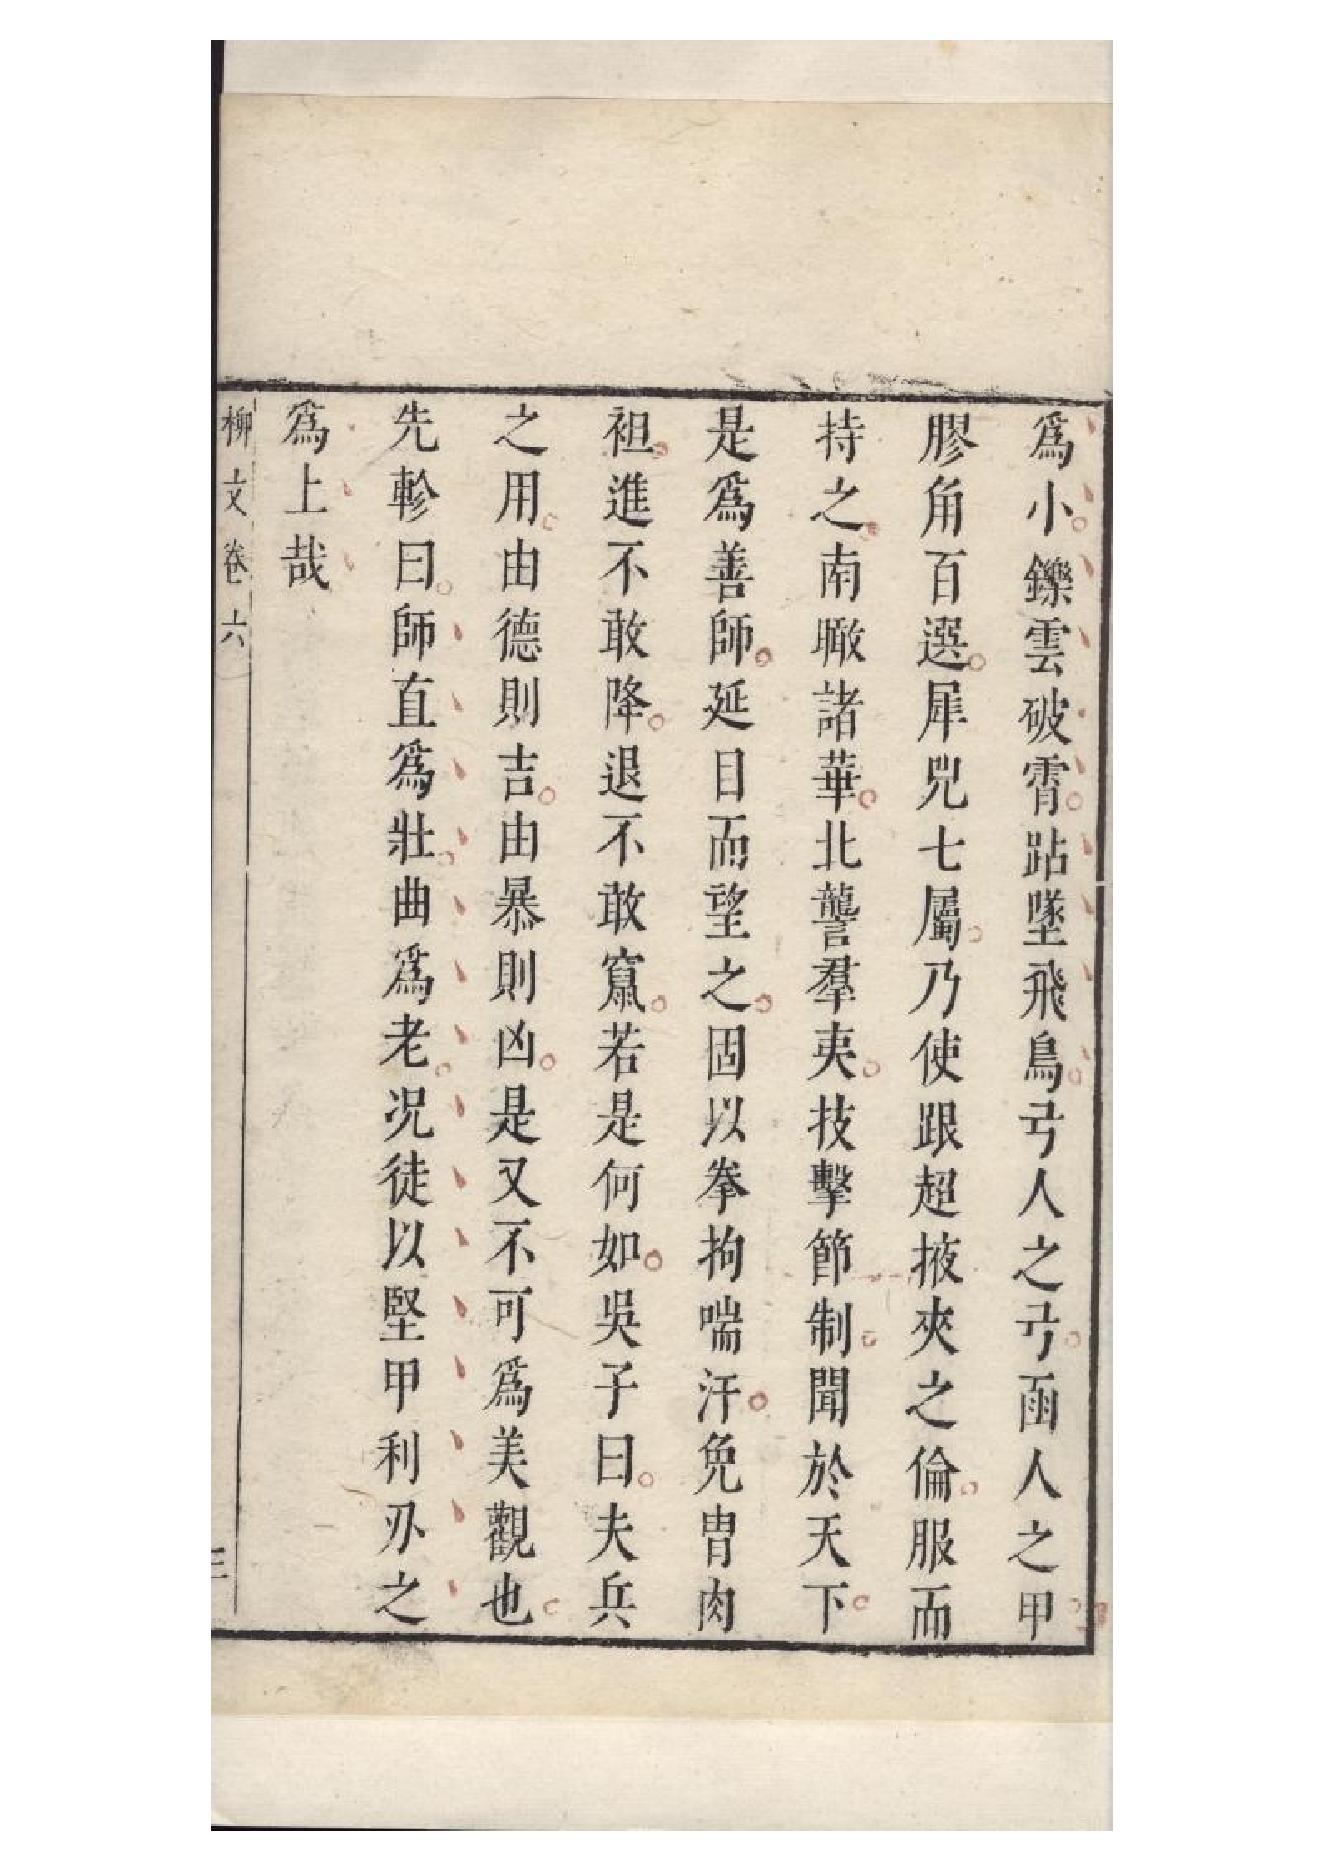 爲小鑠雲破霄跕墜飛鳥弓人之弓函人之甲
膠角百選犀兕七屬乃使跟超掖夾之倫服而
持之南瞰諸華北讋羣夷技擊節制聞於天下
是爲善師延目而望之固以拳拘喘汗免胄肉
袒進不敢降退不敢竄若是何如吳子曰夫兵
之用由德則吉由暴則凶是又不可爲美觀也
先軫曰師直爲壯曲爲老况徒以堅甲利刃之
爲上哉
柳文卷六
三